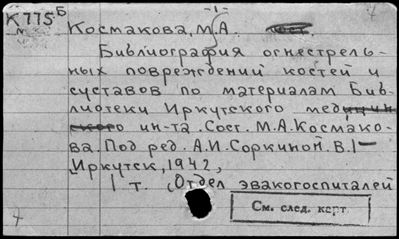 К 775 Б
-1-
Космакова, М.А.
Библиография огнестрель-
ных повреждений костей и
суставов по материалам Биб-
лиотеки Иркутского медицин
ского ин-та. Сост. М.А.Космако-
ва. Под ред. А.И.Соркиной. В.1—
Иркутск, 1942,
1 т. (Отдел эвакогоспиталей
См. след. карт.